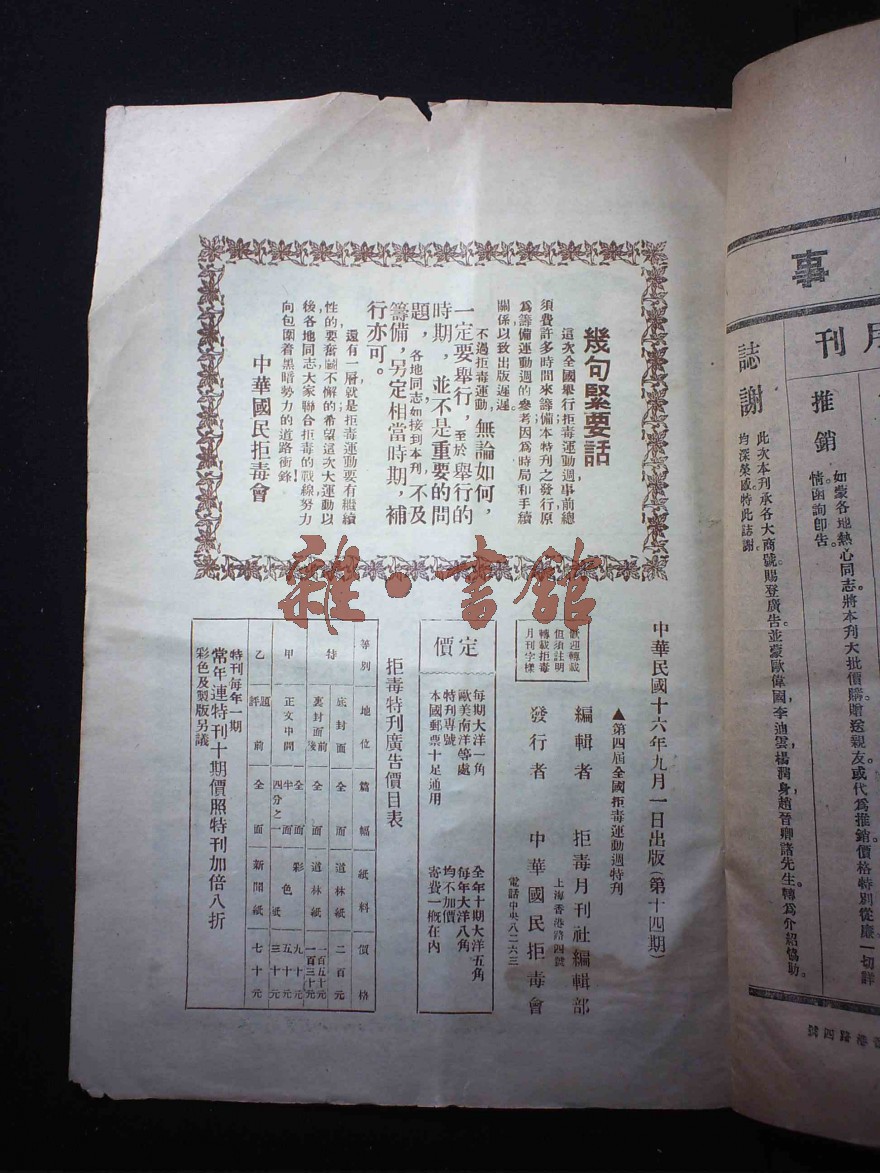 事
月刊
推銷
如蒙各地熱心同志。將本刋大批價購贈送親友或代爲推銷價格特別從廉一切詳
情函詢卽告。
誌謝
此次本刋承各大商號。賜登廣告。並蒙歐偉國，李迪雲楊潤身趙晉卿諸先生。轉爲介紹協助。
均深榮感特此誌謝。
香港路四號
幾句緊要話
這次全國舉行拒毒運動週，事前總
須費許多時間來籌備本特刊之發行原
爲籌備運動週的參考因爲時局和手續
關係以致出版遲遲。
不過拒毒運動，無論如何，
一定要舉行，至於舉行的
時期，並不是重要的問
題，各地同志如接到本刋，不及
籌備，另定相當時期，補
行亦可。
還有一層就是拒毒運動要有繼續
性的要奮鬭不懈的希望這次大運動以
後各地同志大家聯合拒毒的戰線努力
向包圍着黑暗勢力的道路衝鋒！
中華國民拒毒會
中華民國十六年九月一日出版（第十四期）
▲第四屆全國拒毒運動週特刊
編輯者　拒毒月刊社編輯部
上海香港路四號
發行者　中華國民拒毒會
電話中央八二六三
歡迎轉載
但須註明
轉載拒毒
月刊字樣
定價
每期大洋一角　全年十期大洋五角
歐美南洋等處　每年大洋八角
特刊專號　均不加價
本國郵票十足通用　寄費一概在內
拒毒特刊廣告價目表
等別　地位　篇幅　紙料　價格
特　底封面　全面　道林紙　二百元
裏封面前後　全面　道林紙　一百五十元　一百三十元
甲　正文中間　全面　半面　四分之一　彩色紙　九十元　五十元　三十元
乙　題評前　全面　新聞紙　七十元
特刊每年一期
常年連特刊十期價照特刊加倍八折
彩色及製版另議
雜·書館